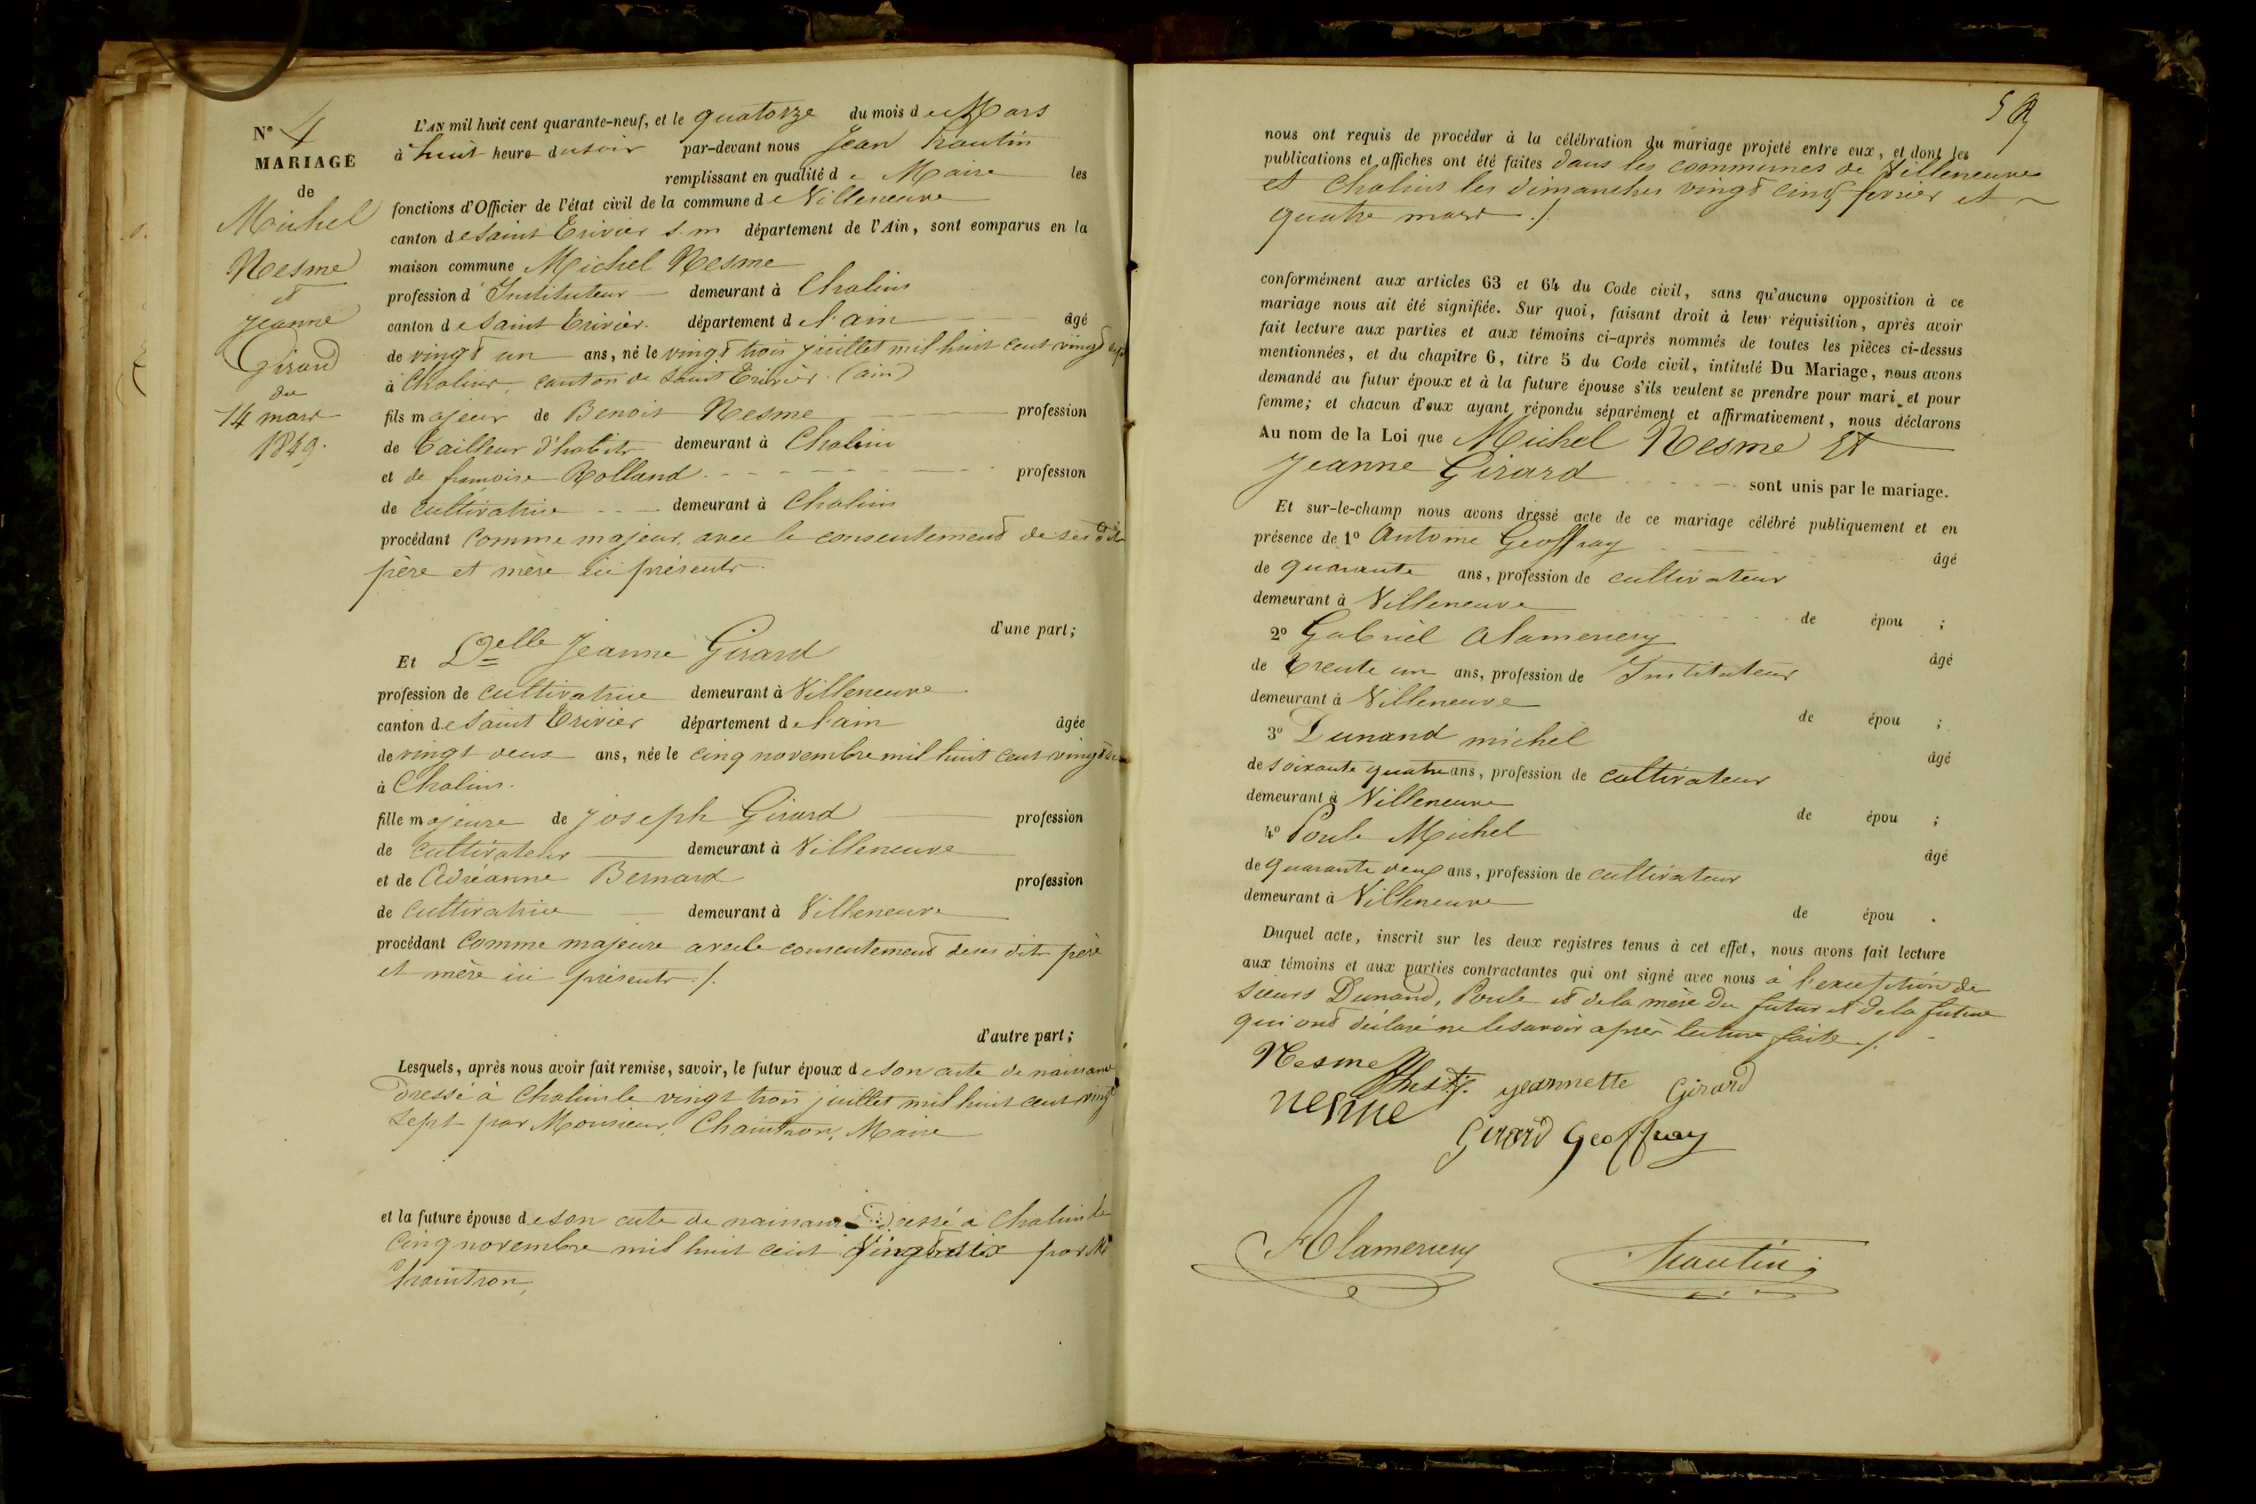 N° 4
MARIAGE
de
Michel
Nesme
et
Jeanne
Girard
du
14 mars
1849.
L'AN mil huit cent quarante-neuf, et le quatorze du mois de Mars
à huit heure du soir par-devant nous Jean Trautin
remplissant en qualité de Maire les
fonctions d'Officier de l'état civil de la commune de Villeneuve
canton de Saint Trivier s. m département de l'Ain, sont comparus en la
maison commune Michel Nesme
profession d'Instituteur demeurant à Chaleins
canton de Saint Trivier. département de l'ain âgé
de vingt un ans, né le vingt trois juillet mil huit cent vingt sept
à Chaleins canton de Saint Trivier (ain)
fils majeur de Benoit Nesme profession
de Tailleur d'habits demeurant à Chaleins
et de francoise Rolland profession
de cultivatrice demeurant à Chaleins
procédant comme majeur avec le consentement de ses dits
père et mère ici présents.
d'une part;
Et Delle Jeanne Girard
profession de cultivatrice demeurant à Villeneuve
canton de Saint Trivier département de l'ain âgée
de vingt deux ans, née le cinq novembre mil huit cent vingt six
à Chaleins.
fille majeure de joseph Girard profession
de cultivateur demeurant à Villeneuve
et de Adréanne Bernard profession
de cultivatrice demeurant à Villeneuve
procédant comme majeure avec le consentement de ses dits père
et mère ici présents ./.
d'autre part;
Lesquels, après nous avoir fait remise, savoir, le futur époux de son acte de naissance
dressé à Chaleins le vingt trois juillet mil huit cent vingt
sept par Monsieur Chaintron, Maire
et la future épouse de son acte de naissance Dressé à Chaleins le
cinq novembre mil huit cent vingt six par Mr
Chaintron,
nous ont requis de procéder à la célébration du mariage projeté entre eux, et dont les
publications et affiches ont été faites dans les communes de Villeneuve
et Chaleins les dimanches vingt cinq fevrier et
quatre mars ./.
conformément aux articles 63 et 64 du Code civil, sans qu'aucune opposition à ce
mariage nous ait été signifiée. Sur quoi, faisant droit à leur réquisition, après avoir
fait lecture aux parties et aux témoins ci-après nommés de toutes les pièces ci-dessus
mentionnées, et du chapitre 6, titre 5 du Code civil, intitulé Du Mariage, nous avons
demandé au futur époux et à la future épouse s'ils veulent se prendre pour mari et pour
femme; et chacun d'eux ayant répondu séparément et affirmativement, nous déclarons
Au nom de la Loi que Michel Nesme Et
Jeanne Girard sont unis par le mariage.
Et sur-le-champ nous avons dressé acte de ce mariage célébré publiquement et en
présence de 1° Antoine Geoffray âgé
de quarante ans, profession de cultivateur
demeurant à Villeneuve de épou ;
2° Gabriel Alamercery âgé
de trente un ans, profession de Instituteur
demeurant à Villeneuve de épou ;
3° Dunand michel âgé
de soixante quatre ans, profession de cultivateur
demeurant à Villeneuve de épou ;
4° Poule Michel âgé
de quarante deux ans, profession de cultivateur
demeurant à Villeneuve de épou .
Duquel acte, inscrit sur les deux registres tenus à cet effet, nous avons fait lecture
aux témoins et aux parties contractantes qui ont signé avec nous à l'exception des
sieurs Dunand, Poule et de la mère du futur et de la future
qui ont déclaré ne le savoir après lecture faite ./.
Nesme jeannette Girard
nesme
Girard Geoffray
Alamercery
Trautin